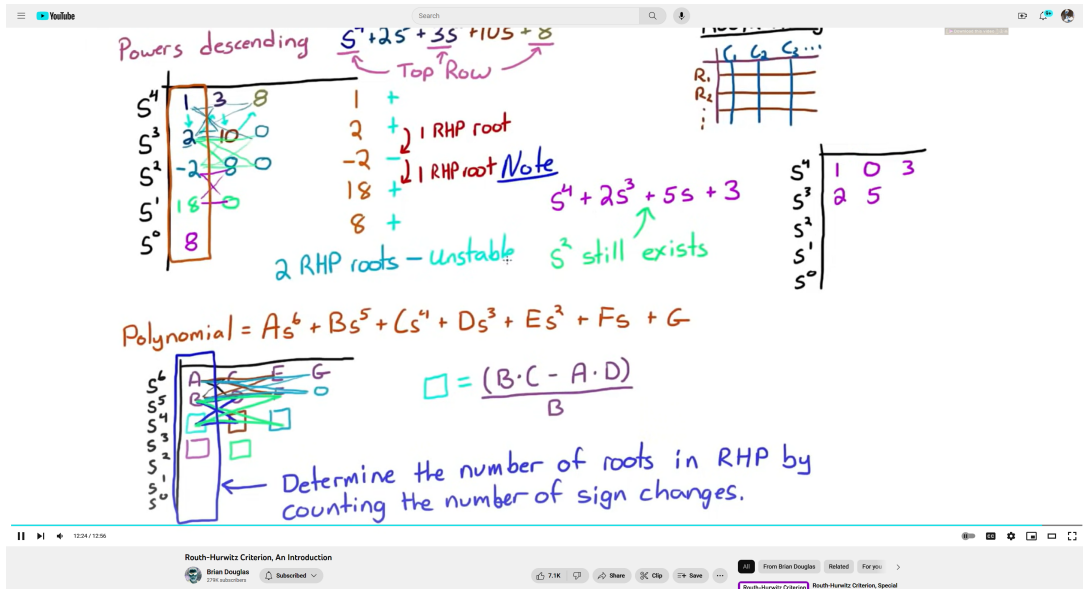 YouTube
Search
9+
Powers descending
s⁴+2s³+3s²+10s+8
Top Row
C₁ C₂ C₃ ...
R₁
R₂
⋮
s⁴ 1 3 8
s³ 2 10 0
s² -2 8 0
s¹ 18 0
s⁰ 8
1 +
2 +
-2 -
18 +
8 +
1 RHP root
1 RHP root
Note
2 RHP roots - unstable
s⁴ + 2s³ + 5s + 3
s² still exists
s⁴ 1 0 3
s³ 2 5
s²
s¹
s⁰
Polynomial = As⁶ + Bs⁵ + Cs⁴ + Ds³ + Es² + Fs + G
s⁶ A C E G
s⁵ B 0
s⁴
s³
s²
s¹
s⁰
□ = (B·C - A·D)
B
Determine the number of roots in RHP by
counting the number of sign changes.
12:24 / 12:56
CC
Routh-Hurwitz Criterion, An Introduction
Brian Douglas
279K subscribers
Subscribed
7.1K
Share
Clip
Save
All
From Brian Douglas
Related
For you
Routh-Hurwitz Criterion
Routh-Hurwitz Criterion, Special